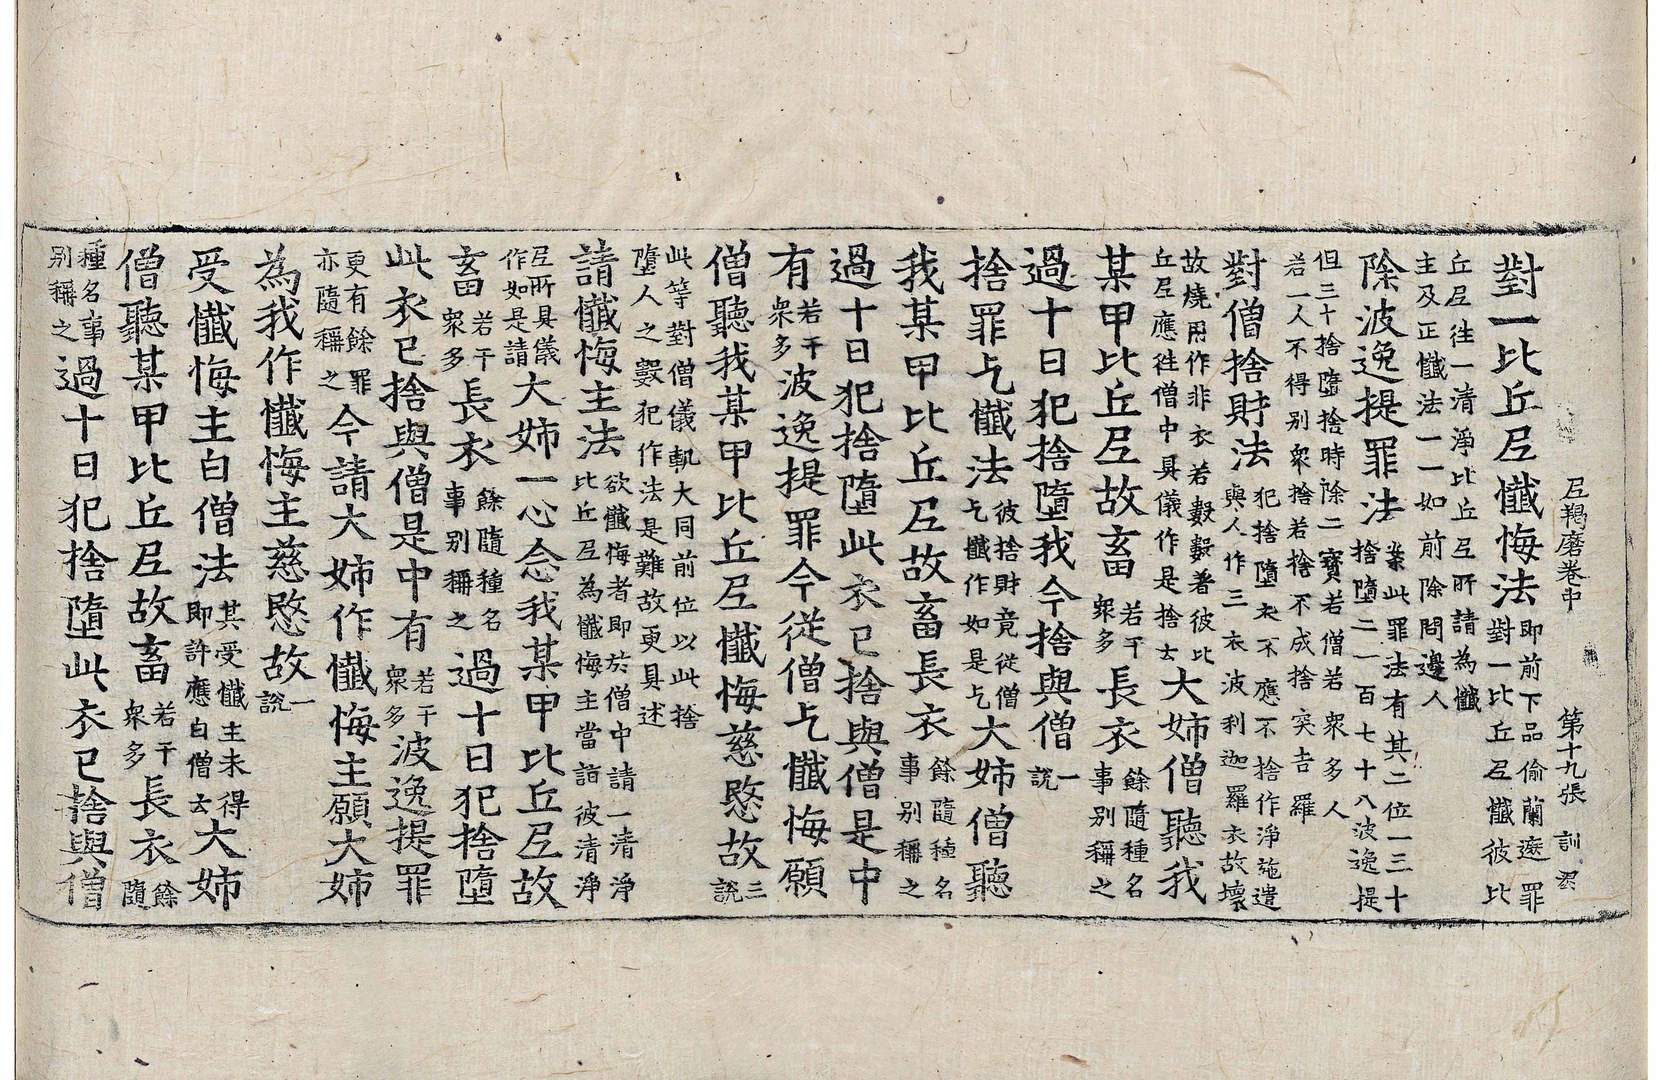 尼羯磨卷中 第十九張 訓
對一比丘尼懺悔法即前下品偷蘭遮罪對一比丘尼懺彼比
丘尼往一清淨比丘尼所請為懺主及正懺法一一如前除問邊人
除波逸提罪法案此罪法有其二位一三十捨墮二一百七十八波逸提
但三十捨墮捨時除二寶若僧若衆多人若一人不得别衆捨若捨不成捨突吉羅
對僧捨財法犯捨墮衣不應不捨作淨施遣與人作三衣波利迦羅衣故壞
故燒用作非衣若數數著彼比丘尼應往僧中具儀作是捨云大姉僧聽我
某甲比丘尼故畜若干衆多長衣餘隨種名事别稱之
過十日犯捨墮我今捨與僧一說
捨罪乞懺法彼捨財竟從僧乞懺作如是乞大姉僧聽
我某甲比丘尼故畜長衣餘隨種名事别稱之
過十日犯捨墮此衣已捨與僧是中
有若干衆多波逸提罪今從僧乞懺悔願
僧聽我某甲比丘尼懺悔慈愍故三說
此等對僧儀軌大同前位以此捨墮人之數犯作法是難故更具述
請懺悔主法欲懺悔者即於僧中請一清淨比丘尼為懺悔主當詣彼清淨
尼所具儀作如是請大姉一心念我某甲比丘尼故
畜若干衆多長衣餘隨種名事别稱之過十日犯捨墮
此衣已捨與僧是中有若干衆多波逸提罪
更有餘罪亦隨稱之今請大姉作懺悔主願大姉
為我作懺悔主慈愍故一說
受懺悔主白僧法其受懺主未得即許應白僧云大姉
僧聽某甲比丘尼故畜若干衆多長衣餘隨
種名事别稱之過十日犯捨墮此衣已捨與僧